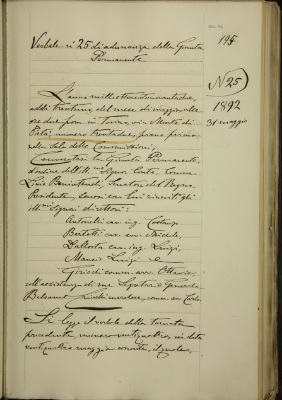 195
Verbale n° 25 di adunanza della Giunta
Permanente
N 25
1892
31 maggio
L'anno milleottocentonovantadue,
addì trentuno del mese di maggio, alle
ore due pom. in Torino, via Monte di
Pietà, numero trentadue, piano primo,
nella Sala delle Commissioni;
Convocatasi la Giunta Permanente,
d'ordine dell'Ill.mo Signor Conte, Comm.
Luigi Senatore del Regno,
Presidente, sonosi con Lui riuniti gli
Ill.mi Signori direttori:
Antonelli cav. ing.
Bertetti cav. avv. Michele,
cav. ing. Luigi,
Luigi, e
comm. avv. Ottavio,
coll'assistenza di me Segretario Generale
comm. avv. Carlo.
Si legge il verbale della tornata
precedente, numero ventiquattro, in data
ventiquattro maggio corrente, il quale,